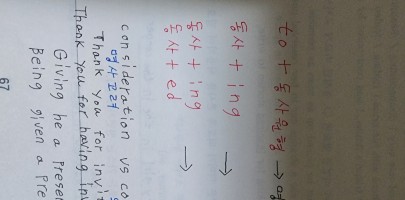 to + 동사원형 →
동사 + ing →
동사 + ing
동사 + ed →
consideration vs co
Thank you for invit
Thank you for having inv
Giving he a prese
Being given a pre
67